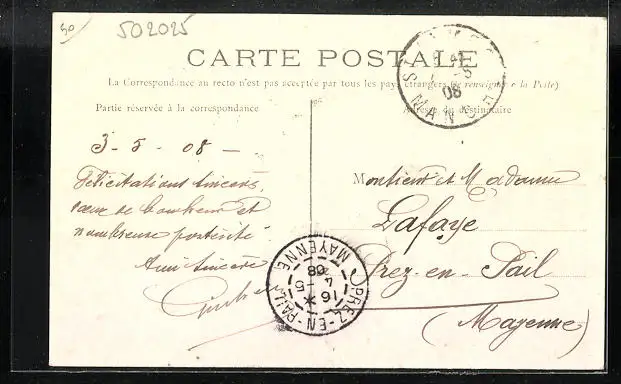 50
502025
CARTE POSTALE
La Correspondance au recto n'est pas acceptée par tous les pays étrangers (se renseigner à la Poste)
Partie réservée à la correspondance
Adresse du destinataire
MANCHE
5
08
3 - 5 - 08 -
Félicitations sincères,
vœux de bonheur et
nombreuse postérité
Ami sincère
Monsieur et Madame
Lafaye
Prez-en-Pail
(Mayenne)
PREZ-EN-PAIL
MAYENNE
16 *
4 - 5
08